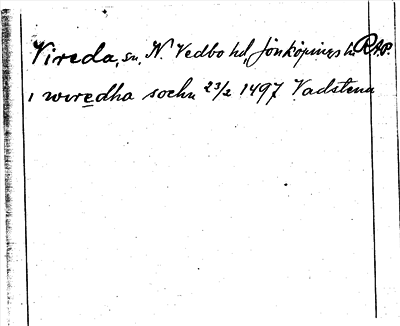 Vireda, sn, N. Vedbo hd, Jönköpings l. RAP.
i wiredha sochn 23/2 1497 Vadstena